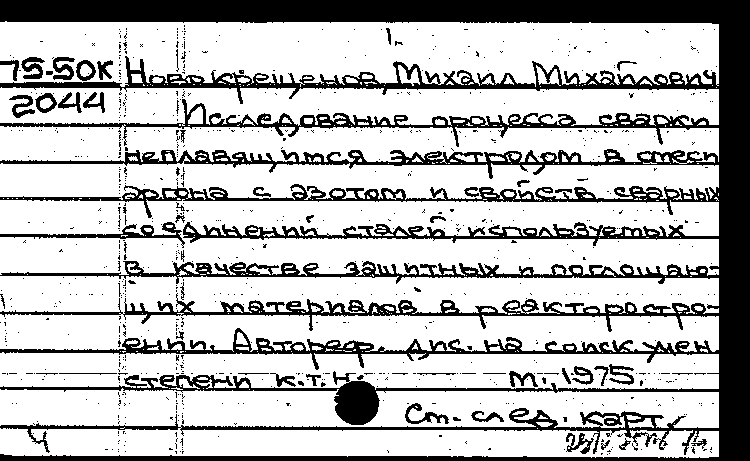 75-50К Новокрещенов, Михаил Михайлович
2044 Исследование процесса сварки
неплавящимся электродом в смеси
аргона с азотом и свойств сварных
соединений сталей, используемых
в качестве защитных и поглощаю-
щих материалов в реакторостро-
ении. Автореф. дис. на соиск. учен.
степени к.т.н. М., 1975.
См. след. карт.
Ч